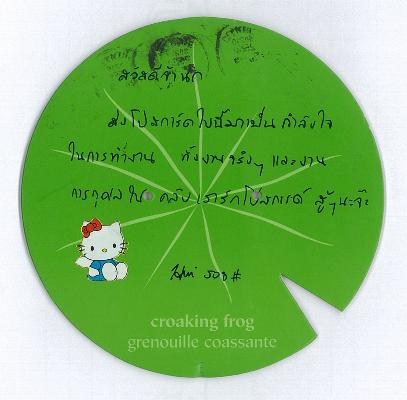 สวัสดีจ้านก
ส่งโปสการ์ดใบนี้มาเป็นกำลังใจ
ในการทำงาน ทั้งงานจริงๆ และงาน
การกุศลใน คลับเรารักโปสการด์ สู้ๆนะจ๊ะ
croaking frog
grenouille coassante